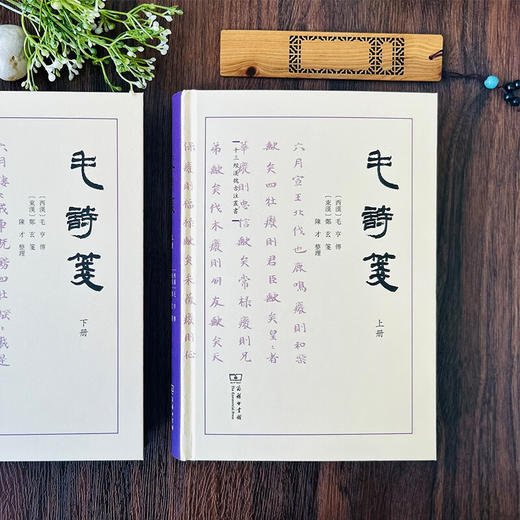 毛詩箋
〔西漢〕毛亨 傳
〔東漢〕鄭玄 箋
陳才 整理
上册
六月宣王北伐也鹿鳴廢則和樂
缺矣四牡廢則君臣缺矣皇〻者
華廢則忠信缺矣常棣廢則兄
弟缺矣伐木廢則朋友缺矣天
保廢則福祿缺矣采薇廢則征
十三經漢魏古注叢書
商務印書館
The Commercial Press
毛詩箋
〔西漢〕毛亨 傳
〔東漢〕鄭玄 箋
陳才 整理
下册
六月棲〻戎車既飭四牡騤〻載是